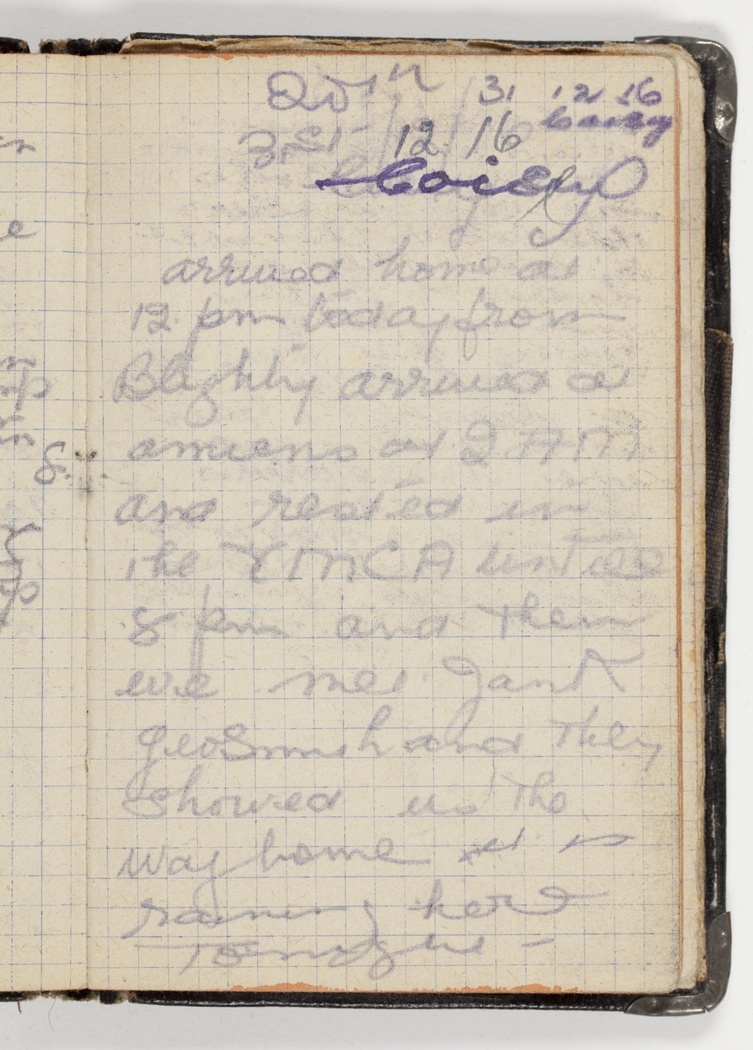 31 12 16
12 16
Coisy
arrived home at
12 pm today from
Blighty arrived at
amiens at 2 AM
and rested in
the YMCA untill
8 pm and then
we met
Geo Smith and they
showed us the
way home it is
raining here
Tonight -